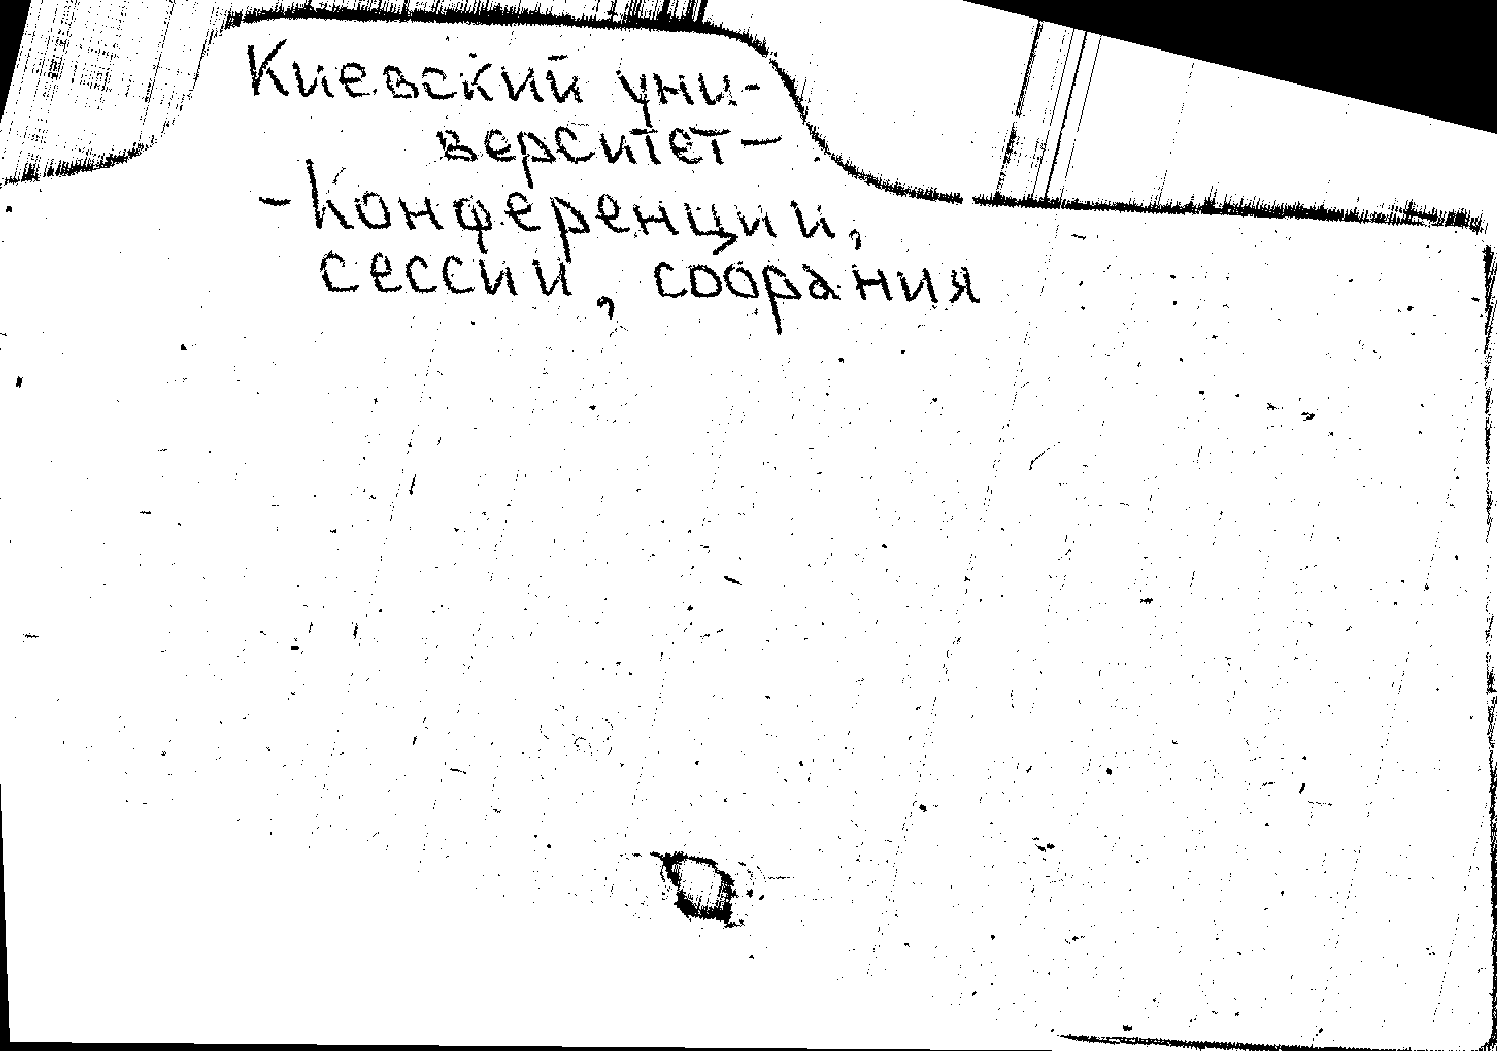 Киевский уни-
верситет-
-Конференции,
сессии, собрания